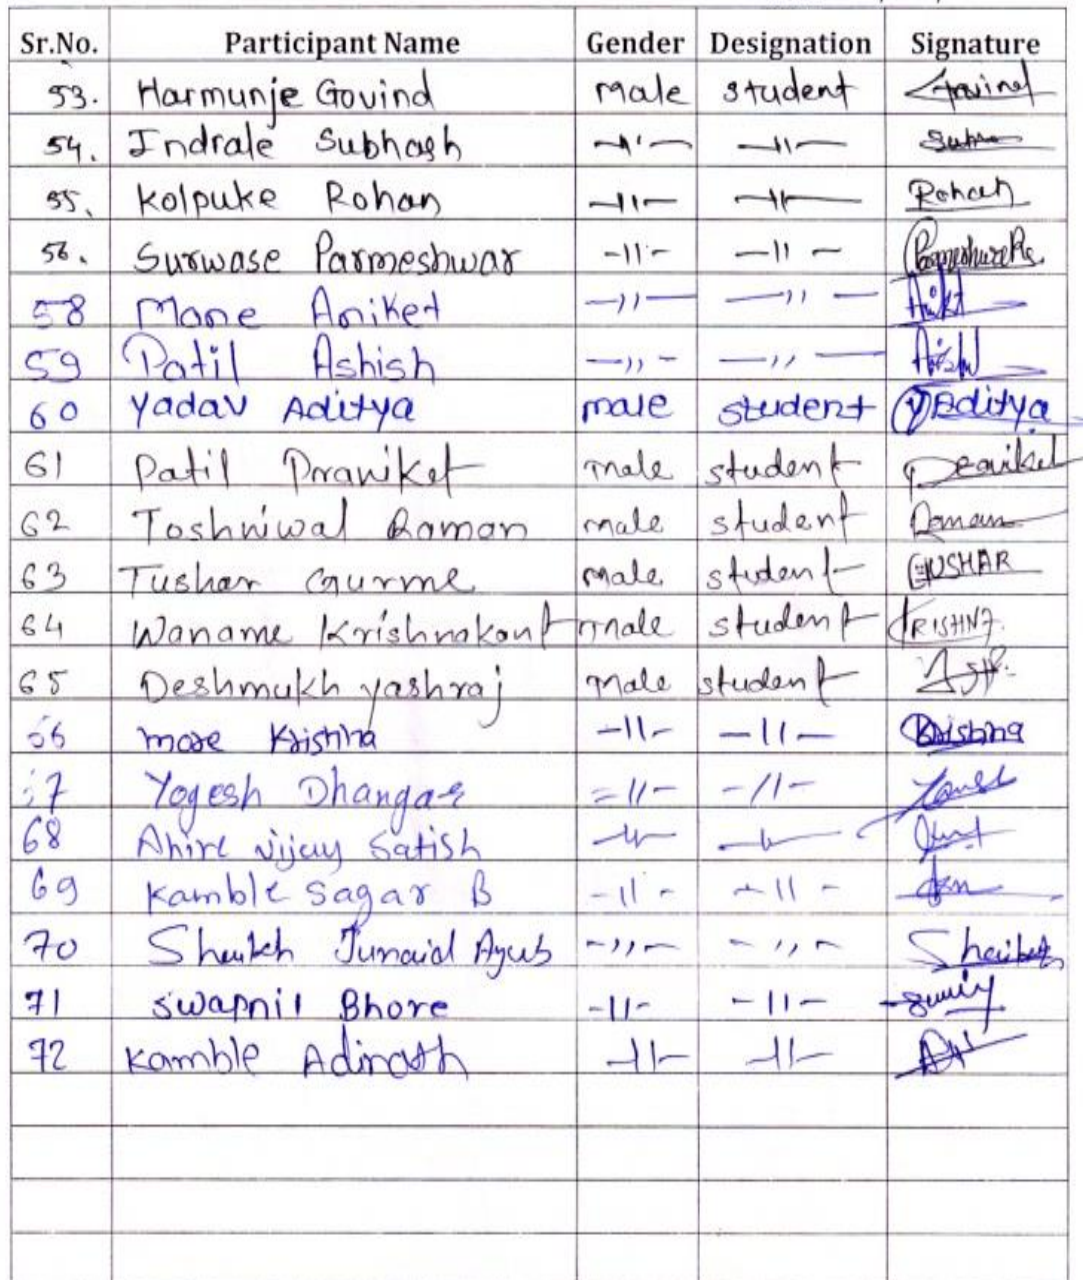 Sr.No. Participant Name Gender Designation Signature
53. Harmunje Govind male student Govind
54. Indrale Subhash —11— —11—
55. Kolpuke Rohan —11— —11— Rohan
56. Surwase Parmeshwar —11— —11—
58 Mane Aniket —11— —11— Aniket
59 Patil Ashish —11— —11—
60 Yadav Aditya male student Aditya
61 Patil Praniket male student
62 Toshniwal Raman male student Raman
63 Tushar Gurme male student TUSHAR
64 Waname Krishnakant male student KRISHNA
65 Deshmukh yashraj male student
66 more Krishna —11— —11— Krishna
67 Yogesh Dhangar —11— —11—
68 Ahire vijay Satish —11— —11—
69 Kamble Sagar B —11— —11—
70 Shaikh Junaid Ayub —11— —11— Shaikh
71 Swapnil Bhore —11— —11—
72 Kamble Adinath —11— —11—